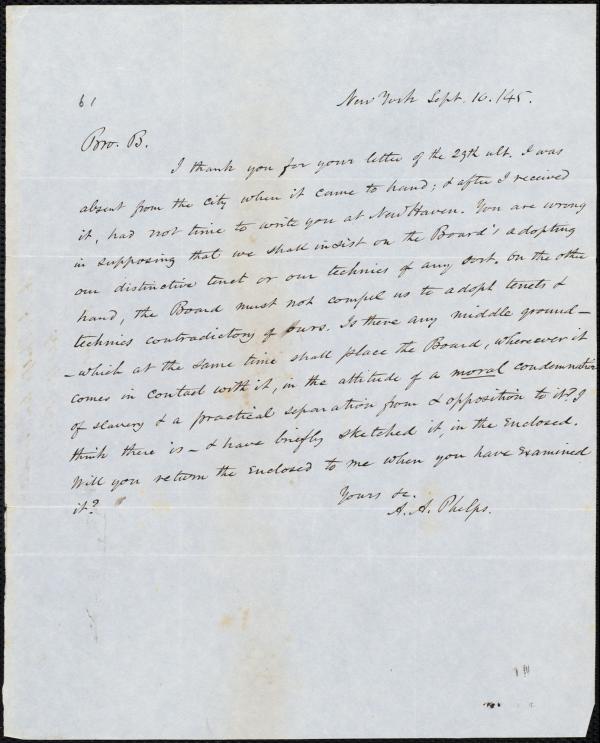 61
New York Sept. 16. 1845.
Bro. B.
I thank you for your letter of the 29th ult. I was
absent from the city when it came to hand; & after I received
it, had not time to write you at New Haven. You are wrong
in supposing that we shall insist on the Board's adopting
our distinctive tenet or our technics of any sort. On the other
hand, the Board must not compel us to adopt tenets &
technics contradictory of ours. Is there any middle ground—
—which at the same time shall place the Board, wherever it
comes in contact with it, in the attitude of a moral condemnation
of slavery & a practical separation from & opposition to it? I
think there is— & have briefly sketched it, in the Enclosed.
Will you return the Enclosed to me when you have Examined
it?
Yours &c.
A. A. Phelps.